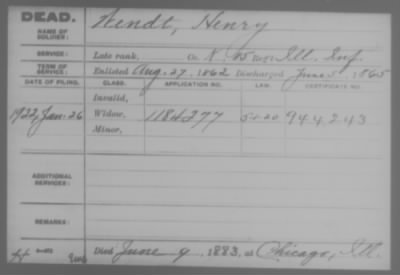 DEAD.
NAME OF SOLDIER:
Wendt, Henry
SERVICE:
Late rank, Co. K, Reg't Ill. Inf.
TERM OF SERVICE:
Enlisted Aug. 27, 1862 Discharged June 5, 1865
DATE OF FILING. CLASS. APPLICATION NO. LAW. CERTIFICATE NO.
Invalid,
1922, Jan. 26 Widow, 1184277 5-1-20 944243
Minor,
ADDITIONAL SERVICES:
REMARKS:
Died June 9, 1883, at Chicago, Ill.